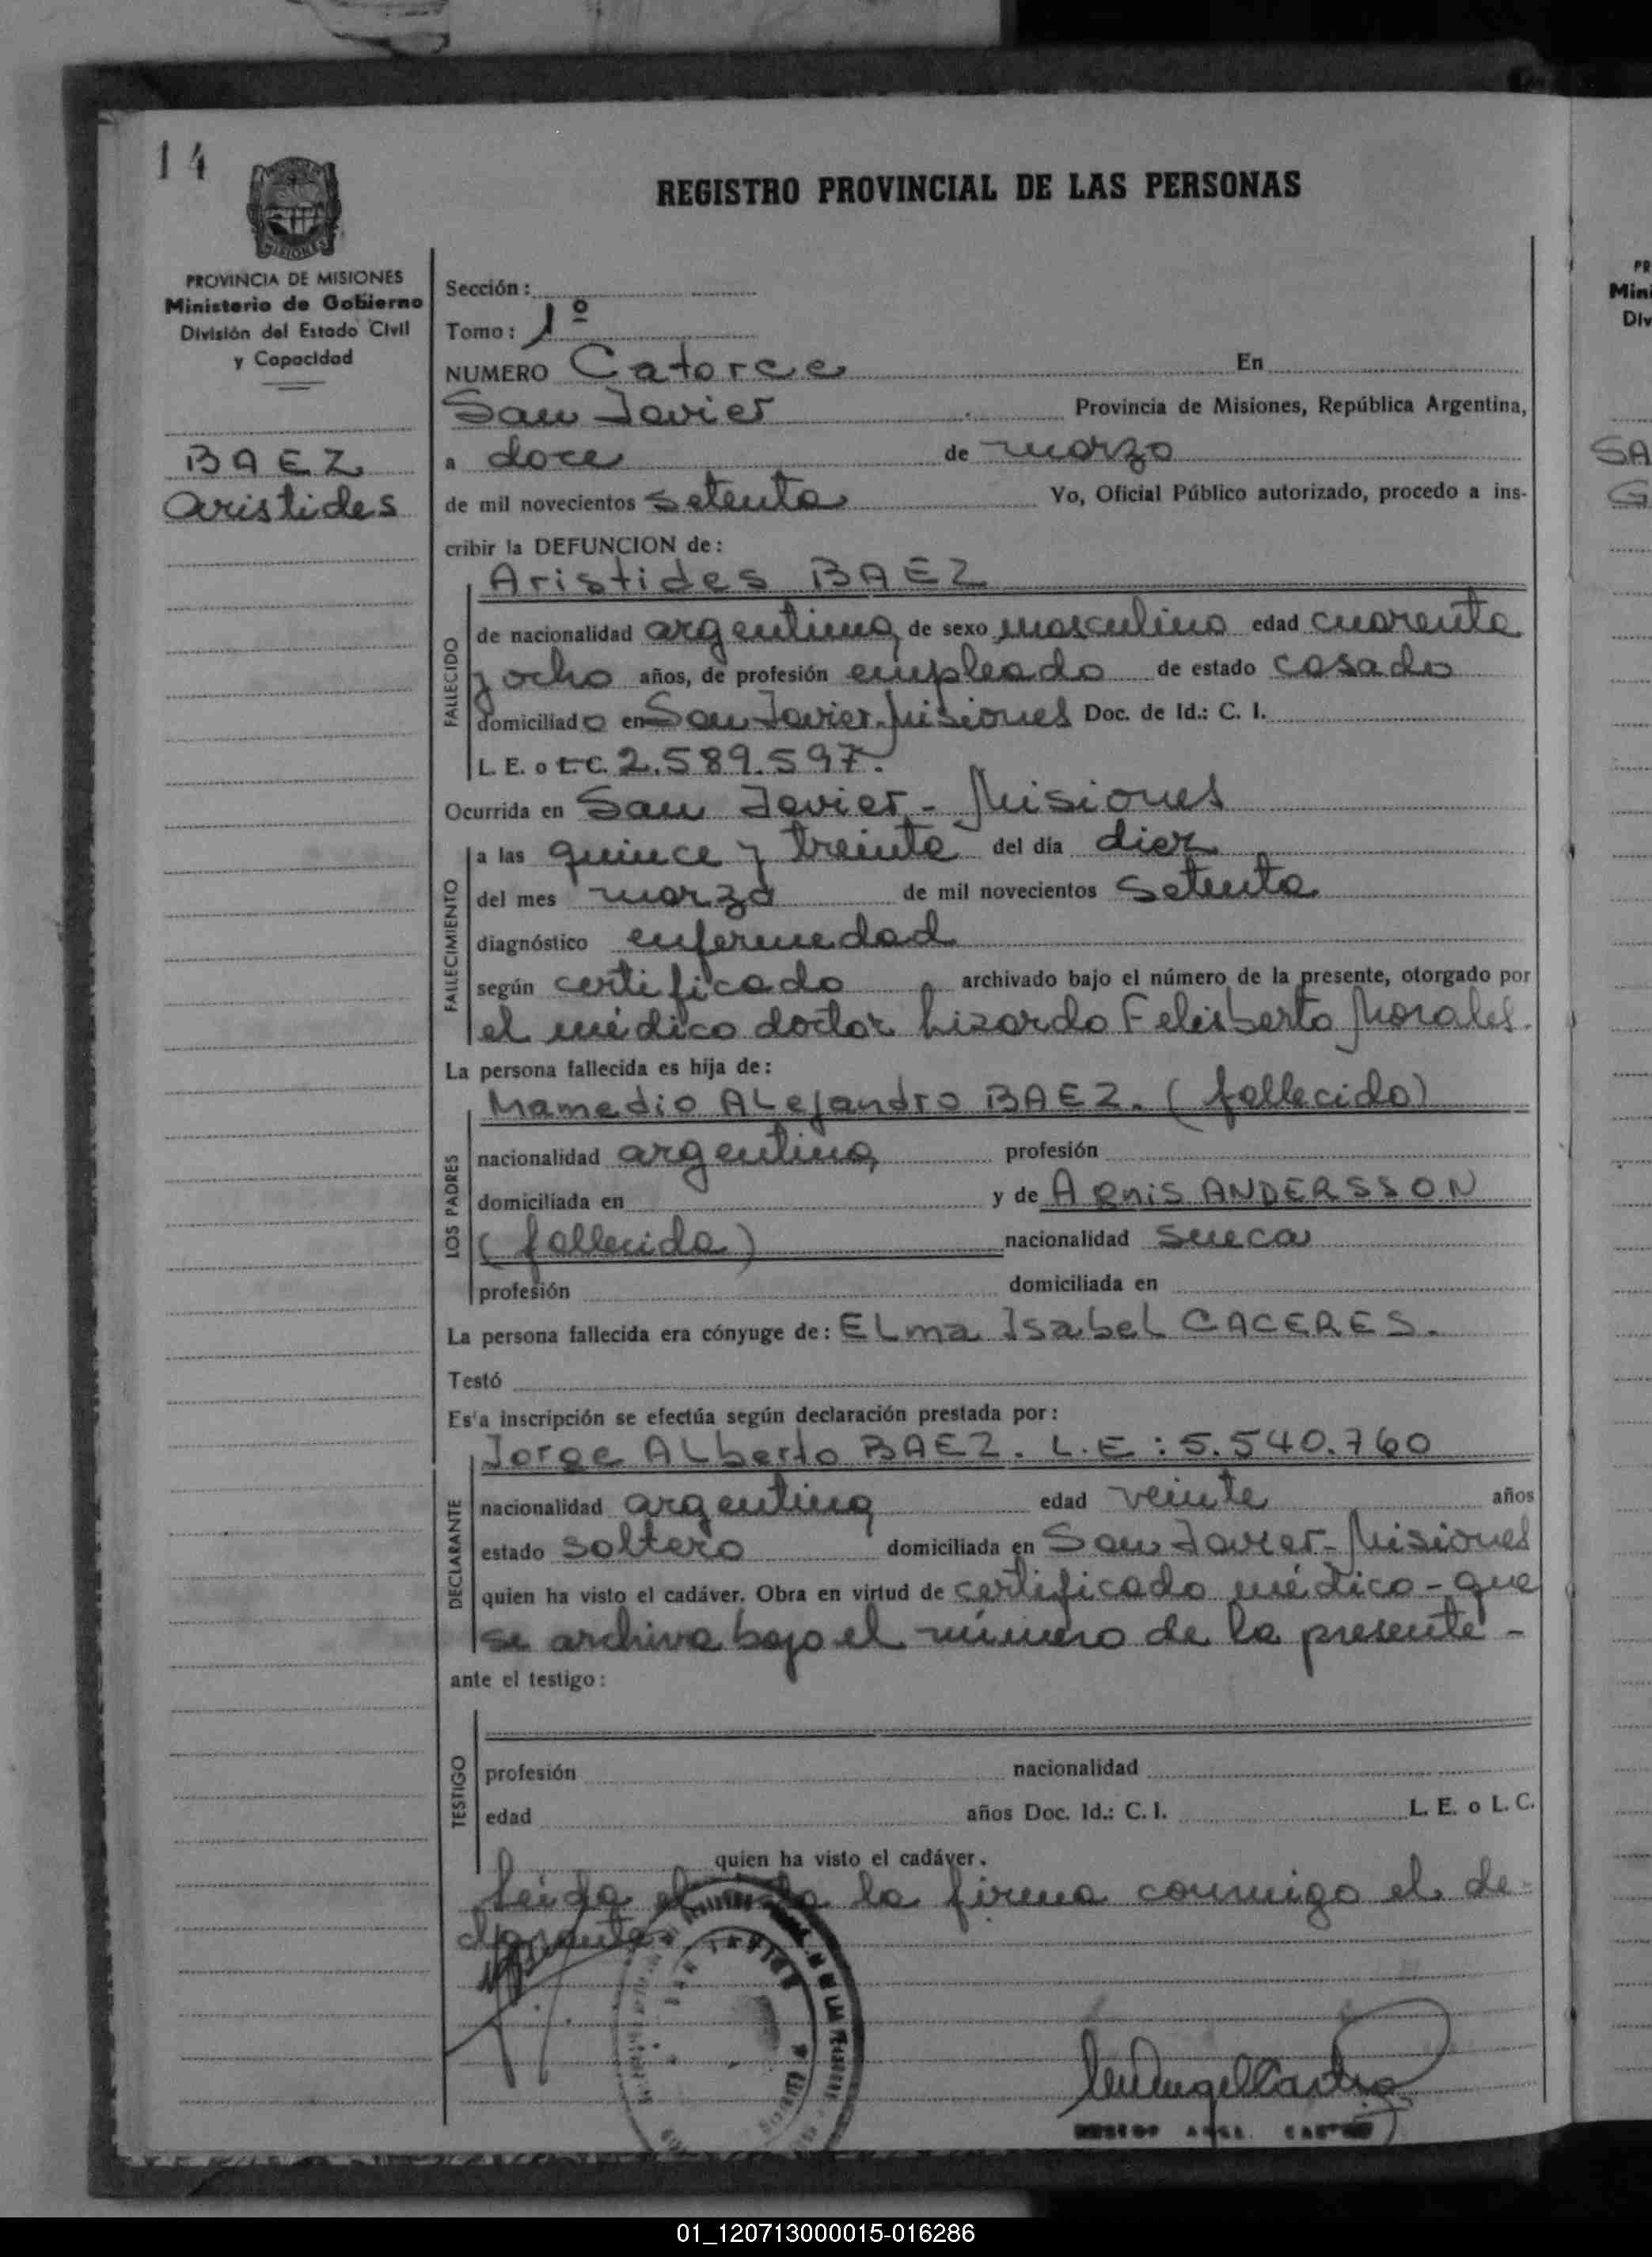 14
REGISTRO PROVINCIAL DE LAS PERSONAS
MISIONES
PROVINCIA DE MISIONES
Ministerio de Gobierno
División del Estado Civil
y Capacidad
BAEZ
Aristides
Sección:
Tomo: 1º
NUMERO Catorce En
San Javier Provincia de Misiones, República Argentina,
a doce de marzo
de mil novecientos setenta Yo, Oficial Público autorizado, procedo a ins-
cribir la DEFUNCION de:
Aristides BAEZ
FALLECIDO
de nacionalidad argentina de sexo masculino edad cuarenta
y ocho años, de profesión empleado de estado casado
domiciliado en San Javier-Misiones Doc. de Id.: C. I.
L. E. o L. C. 2.589.597.
Ocurrida en San Javier - Misiones
FALLECIMIENTO
a las quince y treinta del día diez
del mes marzo de mil novecientos setenta
diagnóstico enfermedad
según certificado archivado bajo el número de la presente, otorgado por
el médico doctor Lizardo Felisberto Morales.
La persona fallecida es hija de:
LOS PADRES
Mamedio Alejandro BAEZ. (fallecido)
nacionalidad argentina profesión
domiciliada en y de Agnis ANDERSSON
(fallecida) nacionalidad sueca
profesión domiciliada en
La persona fallecida era cónyuge de: Elma Isabel CACERES.
Testó
Es'a inscripción se efectúa según declaración prestada por:
DECLARANTE
Jorge Alberto BAEZ. L.E: 5.540.760
nacionalidad argentina edad veinte años
estado soltero domiciliada en San Javier-Misiones
quien ha visto el cadáver. Obra en virtud de certificado médico - que
se archiva bajo el número de la presente -
ante el testigo:
TESTIGO
profesión nacionalidad
edad años Doc. Id.: C. I. L. E. o L. C.
quien ha visto el cadáver.
Leída el acta la firma conmigo el de-
clarante
01_120713000015-016286